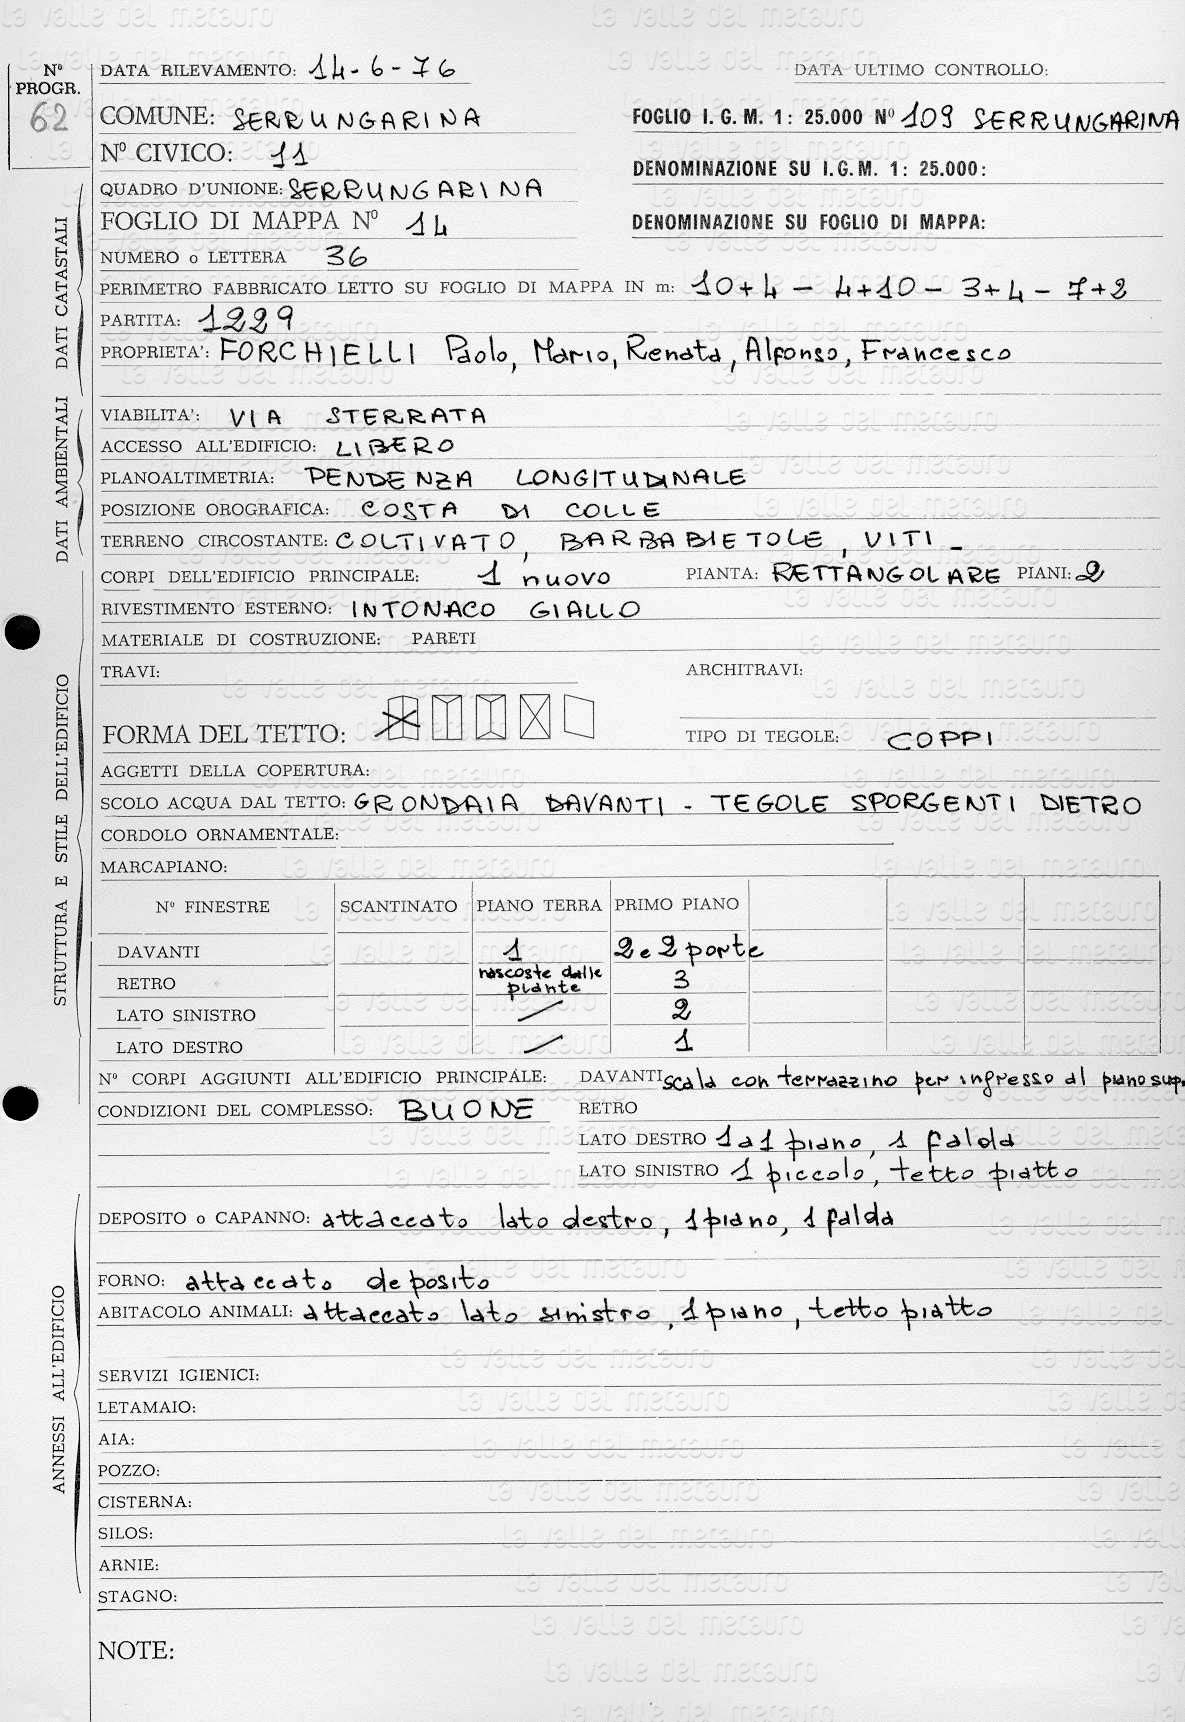 la valle del metauro
Nº PROGR. 62
DATA RILEVAMENTO: 14-6-76 DATA ULTIMO CONTROLLO:
COMUNE: SERRUNGARINA FOGLIO I. G. M. 1: 25.000 Nº 109 SERRUNGARINA
Nº CIVICO: 11 DENOMINAZIONE SU I.G.M. 1: 25.000:
QUADRO D'UNIONE: SERRUNGARINA
FOGLIO DI MAPPA Nº 14 DENOMINAZIONE SU FOGLIO DI MAPPA:
NUMERO o LETTERA 36
PERIMETRO FABBRICATO LETTO SU FOGLIO DI MAPPA IN m: 10+4 - 4+10 - 3+4 - 7+2
PARTITA: 1229
PROPRIETA': FORCHIELLI Paolo, Mario, Renata, Alfonso, Francesco
DATI CATASTALI
VIABILITA': VIA STERRATA
ACCESSO ALL'EDIFICIO: LIBERO
PLANOALTIMETRIA: PENDENZA LONGITUDINALE
POSIZIONE OROGRAFICA: COSTA DI COLLE
TERRENO CIRCOSTANTE: COLTIVATO, BARBABIETOLE, VITI -
DATI AMBIENTALI
CORPI DELL'EDIFICIO PRINCIPALE: 1 nuovo PIANTA: RETTANGOLARE PIANI: 2
RIVESTIMENTO ESTERNO: INTONACO GIALLO
MATERIALE DI COSTRUZIONE: PARETI
TRAVI: ARCHITRAVI:
FORMA DEL TETTO: TIPO DI TEGOLE: COPPI
AGGETTI DELLA COPERTURA:
SCOLO ACQUA DAL TETTO: GRONDAIA DAVANTI - TEGOLE SPORGENTI DIETRO
CORDOLO ORNAMENTALE:
MARCAPIANO:
STRUTTURA E STILE DELL'EDIFICIO
Nº FINESTRE SCANTINATO PIANO TERRA PRIMO PIANO
DAVANTI 1 2 e 2 porte
RETRO nascoste dalle piante 3
LATO SINISTRO / 2
LATO DESTRO / 1
Nº CORPI AGGIUNTI ALL'EDIFICIO PRINCIPALE: DAVANTI scala con terrazzino per ingresso al piano sup.
CONDIZIONI DEL COMPLESSO: BUONE RETRO
LATO DESTRO 1 a 1 piano, 1 falda
LATO SINISTRO 1 piccolo, tetto piatto
DEPOSITO o CAPANNO: attaccato lato destro, 1 piano, 1 falda
FORNO: attaccato deposito
ABITACOLO ANIMALI: attaccato lato sinistro, 1 piano, tetto piatto
SERVIZI IGIENICI:
LETAMAIO:
AIA:
POZZO:
CISTERNA:
SILOS:
ARNIE:
STAGNO:
ANNESSI ALL'EDIFICIO
NOTE: